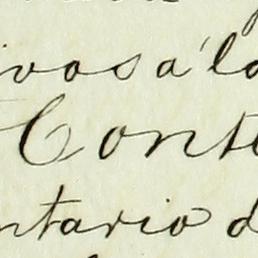 ivos á la
Conte
ntario d